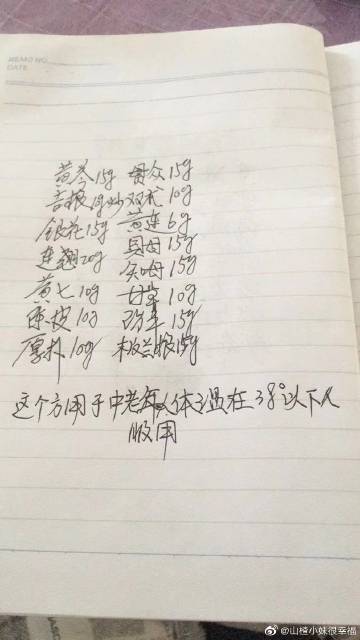 MEMO NO.
DATE
黄芩15g 贯众15g
吉根 炒双术10g
银花15g 黄连6g
连翘20g 贝母15g
知母15g
黄七10g 甘草10g
陈皮10g 15g
厚朴10g 板兰根15g
这个方用于中老年人体温在38°以下人
服用
@山楂小妹很幸福